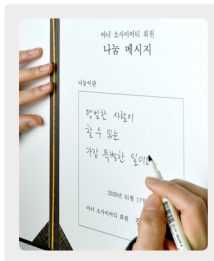 아너 소사이어티 회원
나눔 메시지
나눔이란
평범한 사람이
할 수 있는
가장 특별한 일이다
2020년 01월 17일
아너 소사이어티 회원